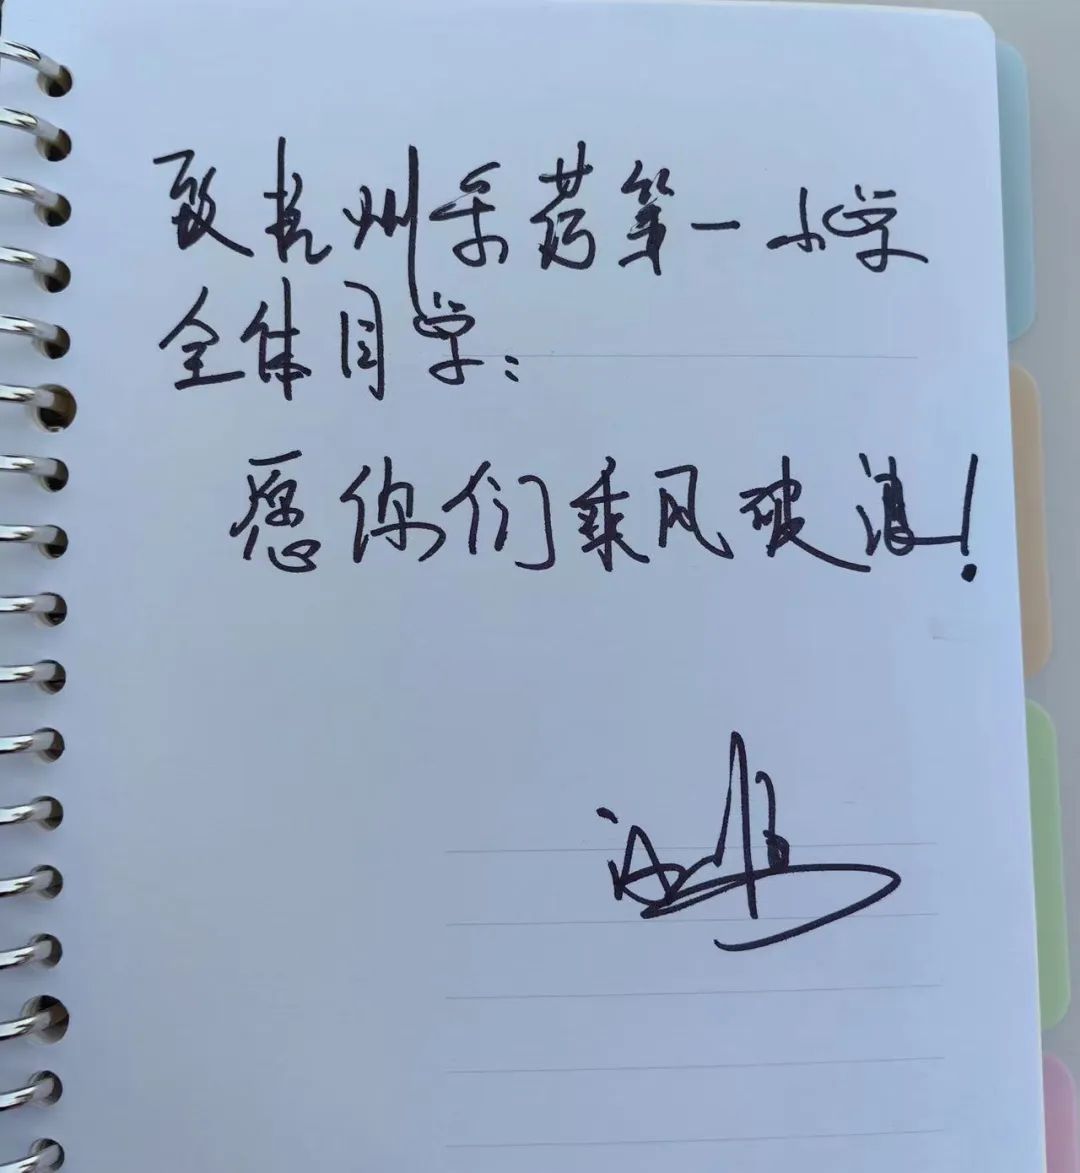 致杭州采荷第一小学
全体同学：
愿你们乘风破浪！